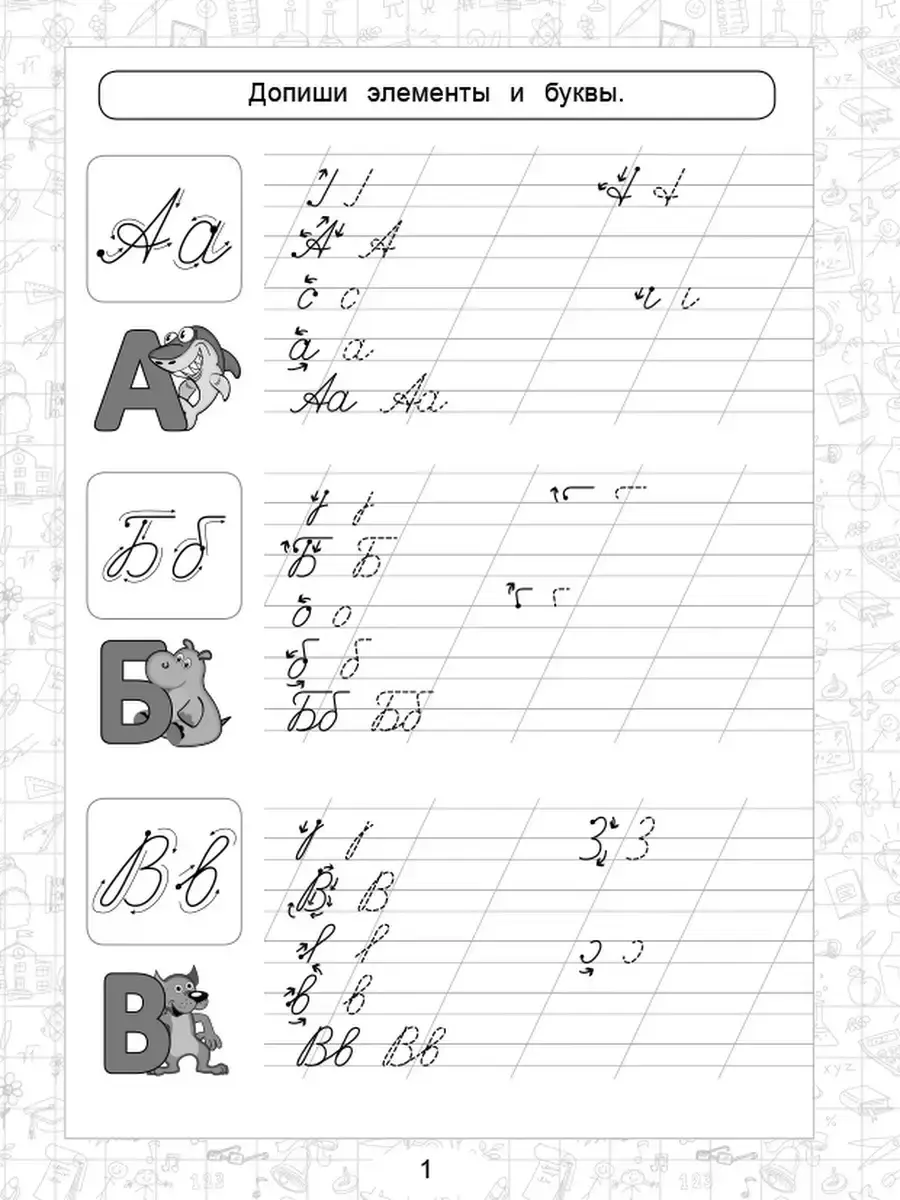 Допиши элементы и буквы.
Аа
А А
а а
Аа Аа
А
Бб
Б Б
о о
б б
Бб Бб
Б
Вв
З З
В В
в в
Вв Вв
В
1